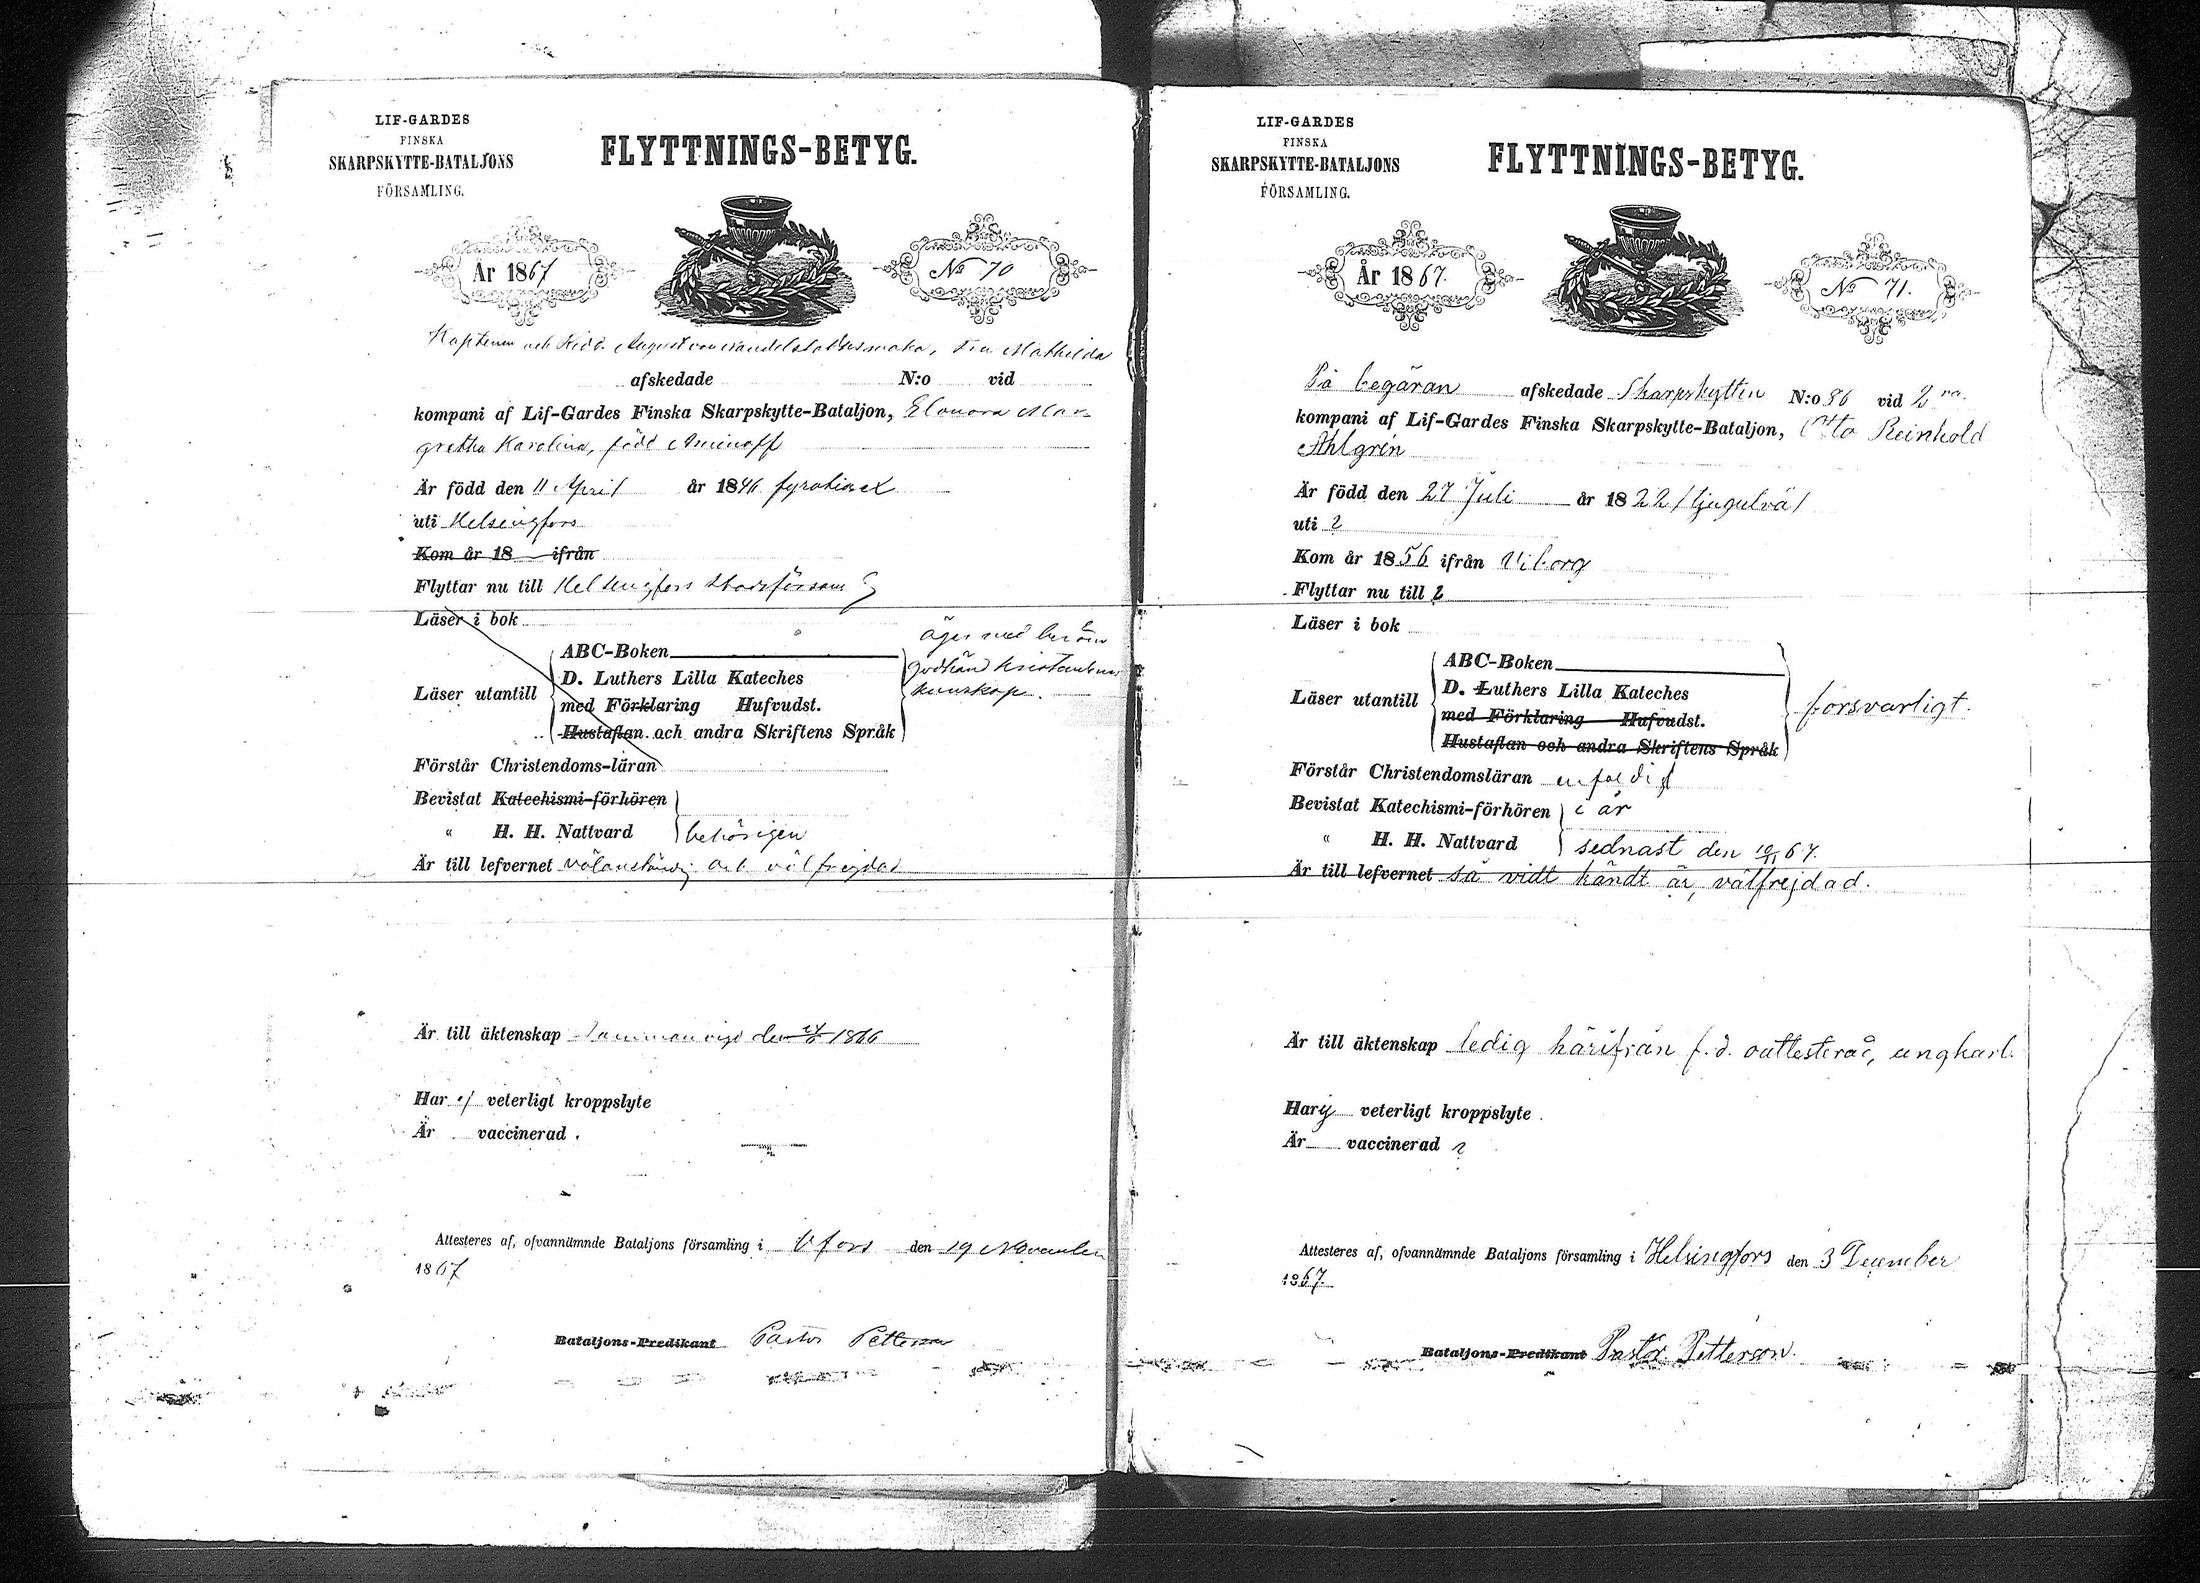 LIF-GARDES
FINSKA
SKARPSKYTTE-BATALJONS
FÖRSAMLING.
FLYTTNINGS-BETYG.
År 1867
No 70
Kaptenen och Ridd. August von maka, Mathilda
afskedade N:o vid
kompani af Lif-Gardes Finska Skarpskytte-Bataljon, Elonora Mar-
gretha Karolina, född Aminoff
Är född den 11 April år 1846 fyratiosex
uti Helsingfors
Kom år 18 ifrån
Flyttar nu till Helsingfors
Läser i bok
Läser utantill
ABC-Boken
D. Luthers Lilla Kateches
med Förklaring Hufvudst.
Hustaflan och andra Skriftens Språk
äger med beröm
godkänd kristendoms
kunskap.
Förstår Christendoms-läran
Bevistat Katechismi-förhören
" H. H. Nattvard behörigen
Är till lefvernet välanständig och välfrejdad
Är till äktenskap Sammanvigd den 1866
Har ej veterligt kroppslyte
Är vaccinerad.
Attesteres af, ofvannämnde Bataljons församling i Hfors den 19 November
1867
Bataljons-Predikant Pastor Petterson
LIF-GARDES
FINSKA
SKARPSKYTTE-BATALJONS
FÖRSAMLING.
FLYTTNINGS-BETYG.
År 1867.
No 71.
På begäran afskedade Skarpskytten N:o 86 vid 2ra
kompani af Lif-Gardes Finska Skarpskytte-Bataljon, Otto Reinhold
Ahlgrén
Är född den 27 Juli år 1822 /tjugutvå/
uti ?
Kom år 1856 ifrån Viborg
Flyttar nu till ?
Läser i bok
Läser utantill
ABC-Boken
D. Luthers Lilla Kateches
med Förklaring Hufvudst.
Hustaflan och andra Skriftens Språk
försvarligt.
Förstår Christendomsläran enfaldigt
Bevistat Katechismi-förhören i år
" H. H. Nattvard sednast den 10/11 67.
Är till lefvernet så vidt kändt är, välfrejdad.
Är till äktenskap ledig härifrån f.d. oattesterad, ungkarl.
Har ej veterligt kroppslyte.
Är vaccinerad ?
Attesteres af, ofvannämnde Bataljons församling i Helsingfors den 3 December
1867.
Bataljons-Predikant Pastor Petterson.